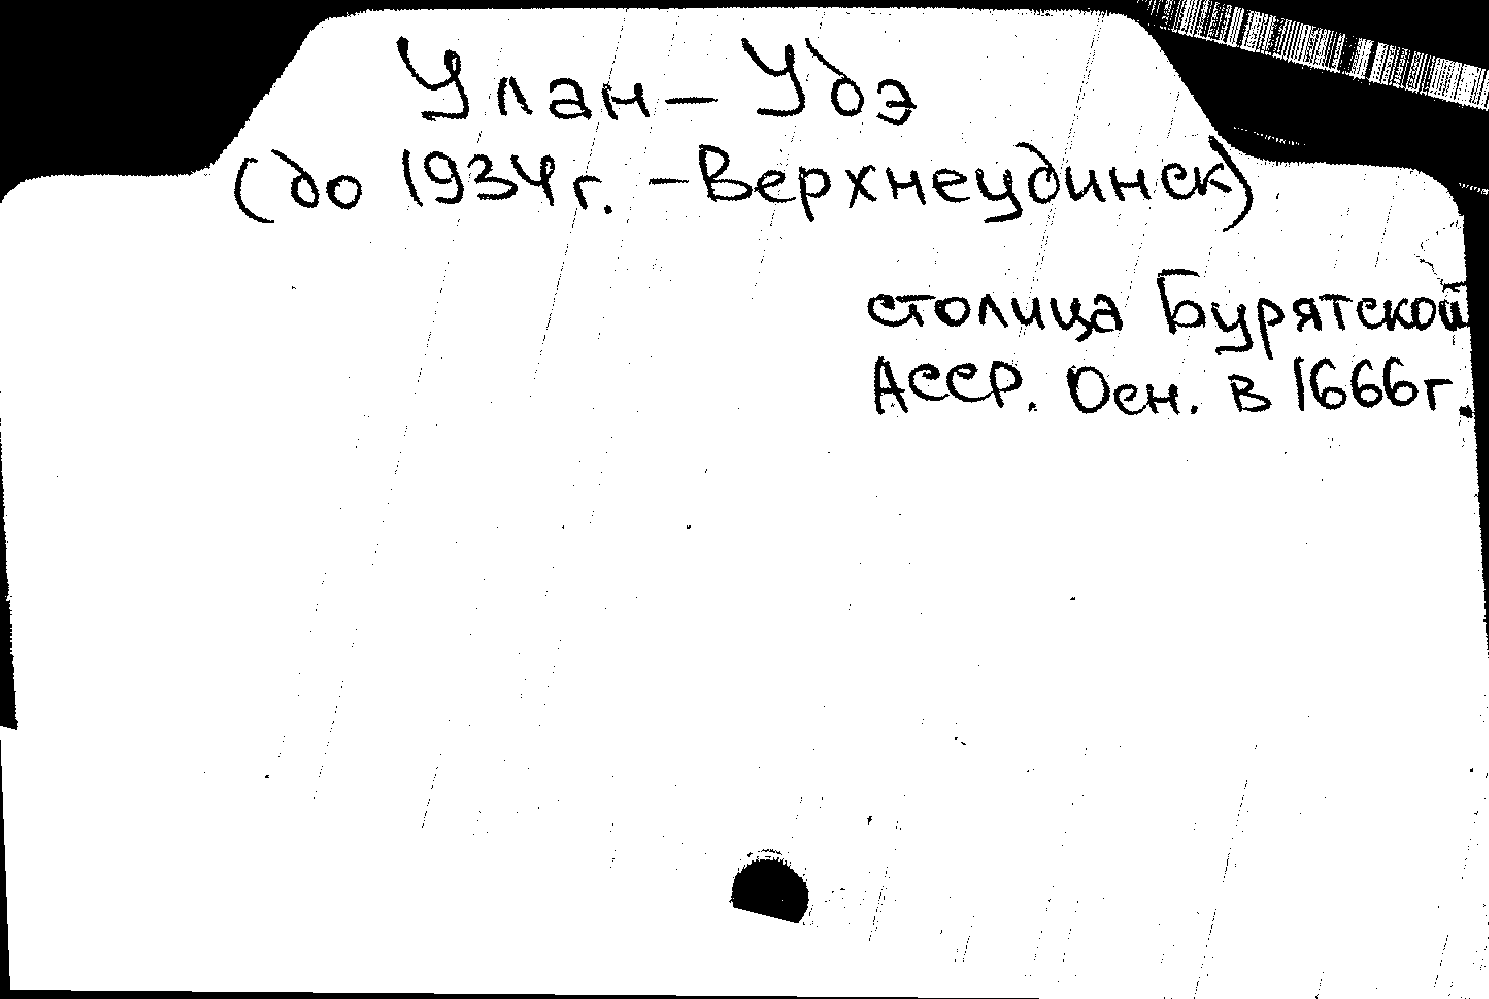 Улан-Удэ
(до 1934г. -Верхнеудинск)
столица Бурятской
АССР. Осн. в 1666г.